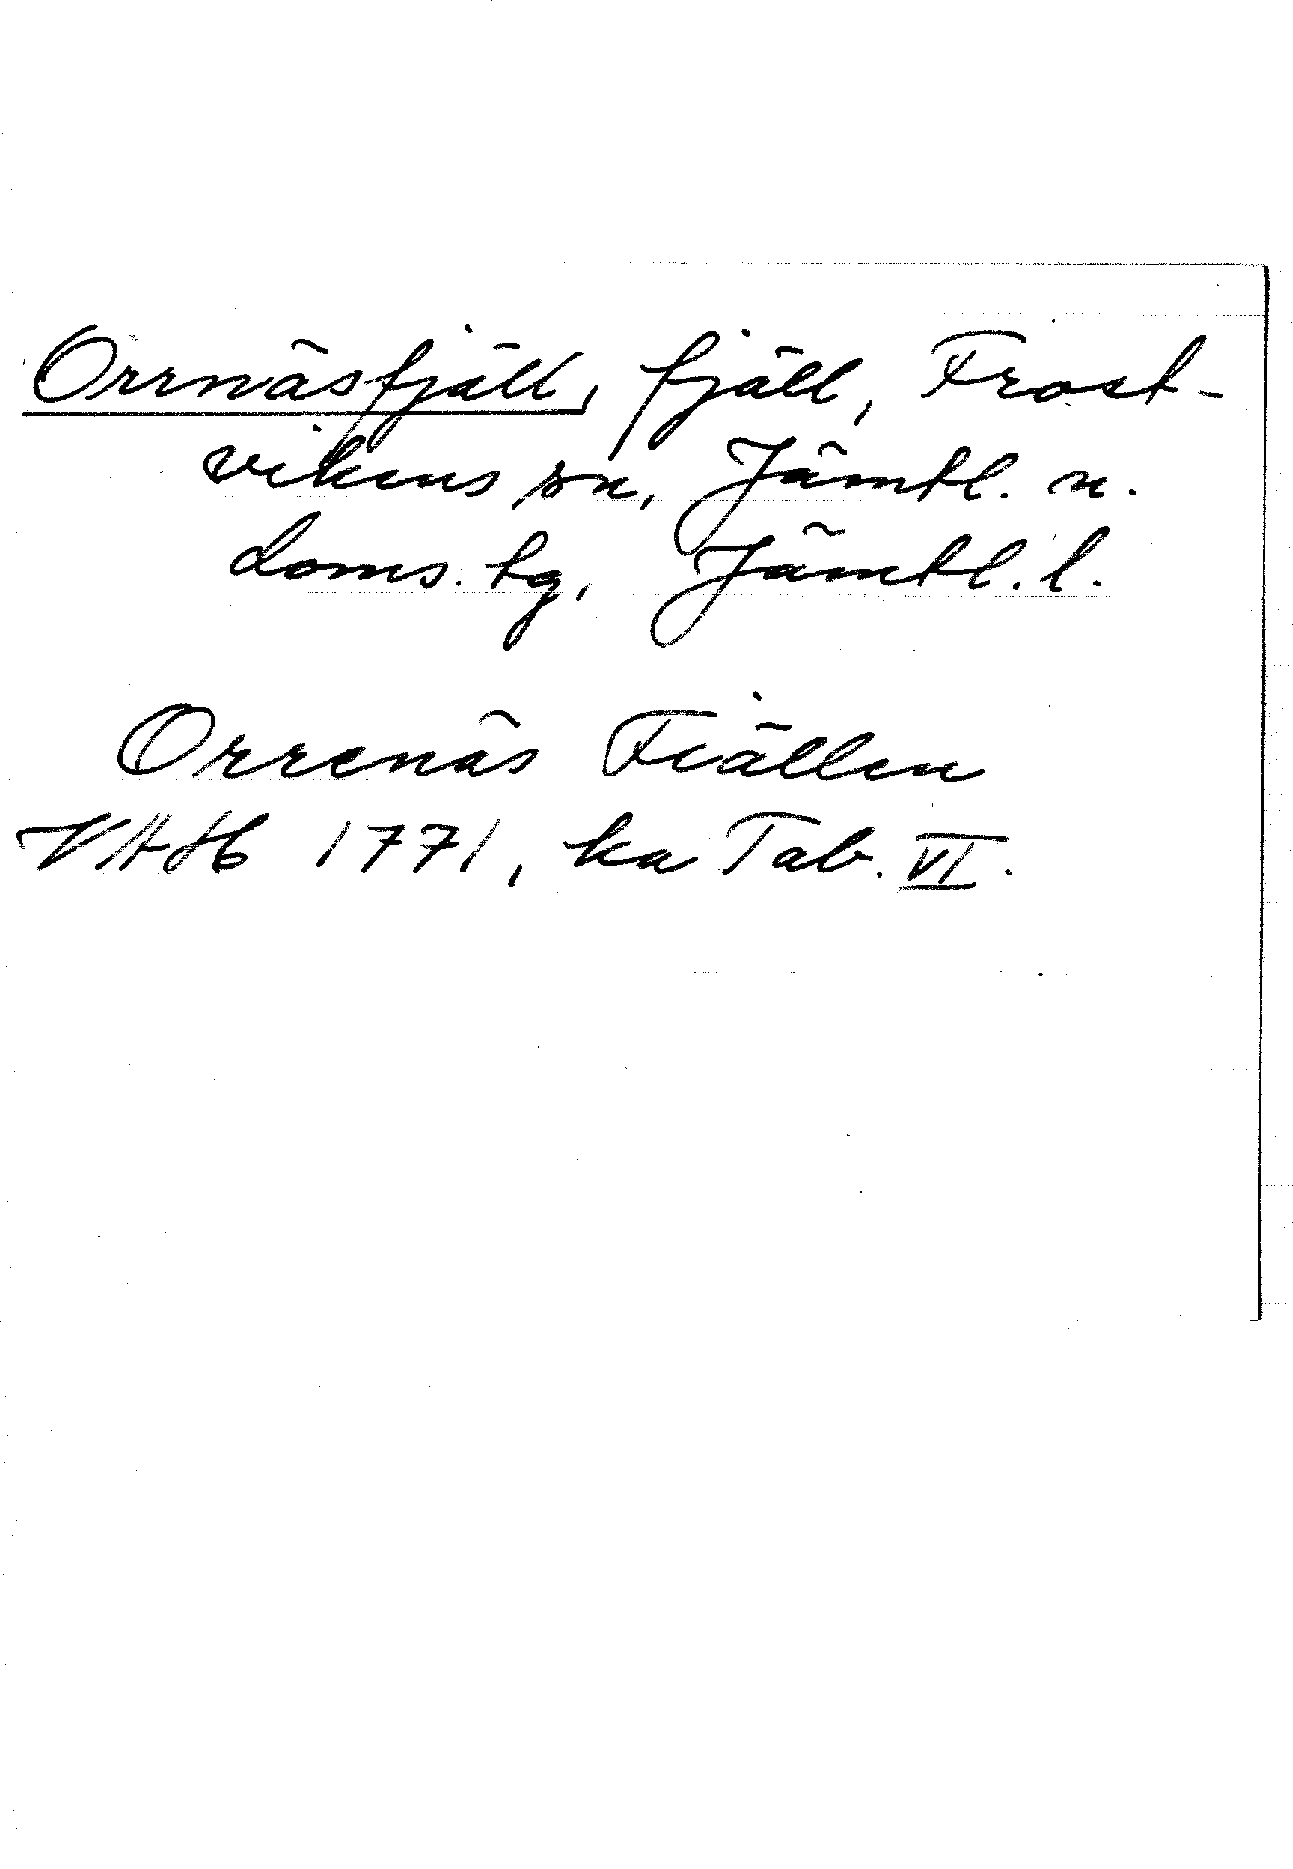 Orrnäsfjäll, fjäll, Frost-
vikens sn, Jämtl. n.
doms. tg, Jämtl. l.
Orrenäs Fiällen
VAH 1771, ka Tab. VI.